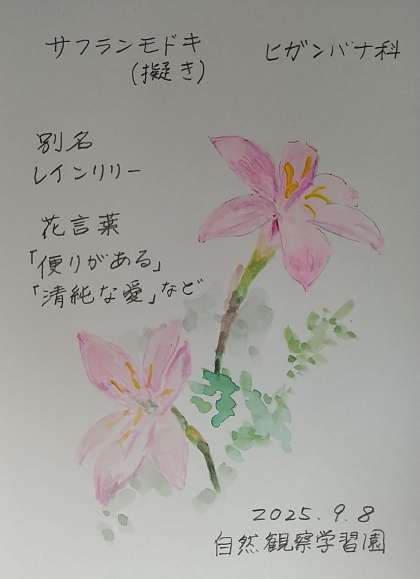 サフランモドキ
(擬き)
ヒガンバナ科
別名
レインリリー
花言葉
「便りがある」
「清純な愛」など
2025.9.8
自然観察学習園